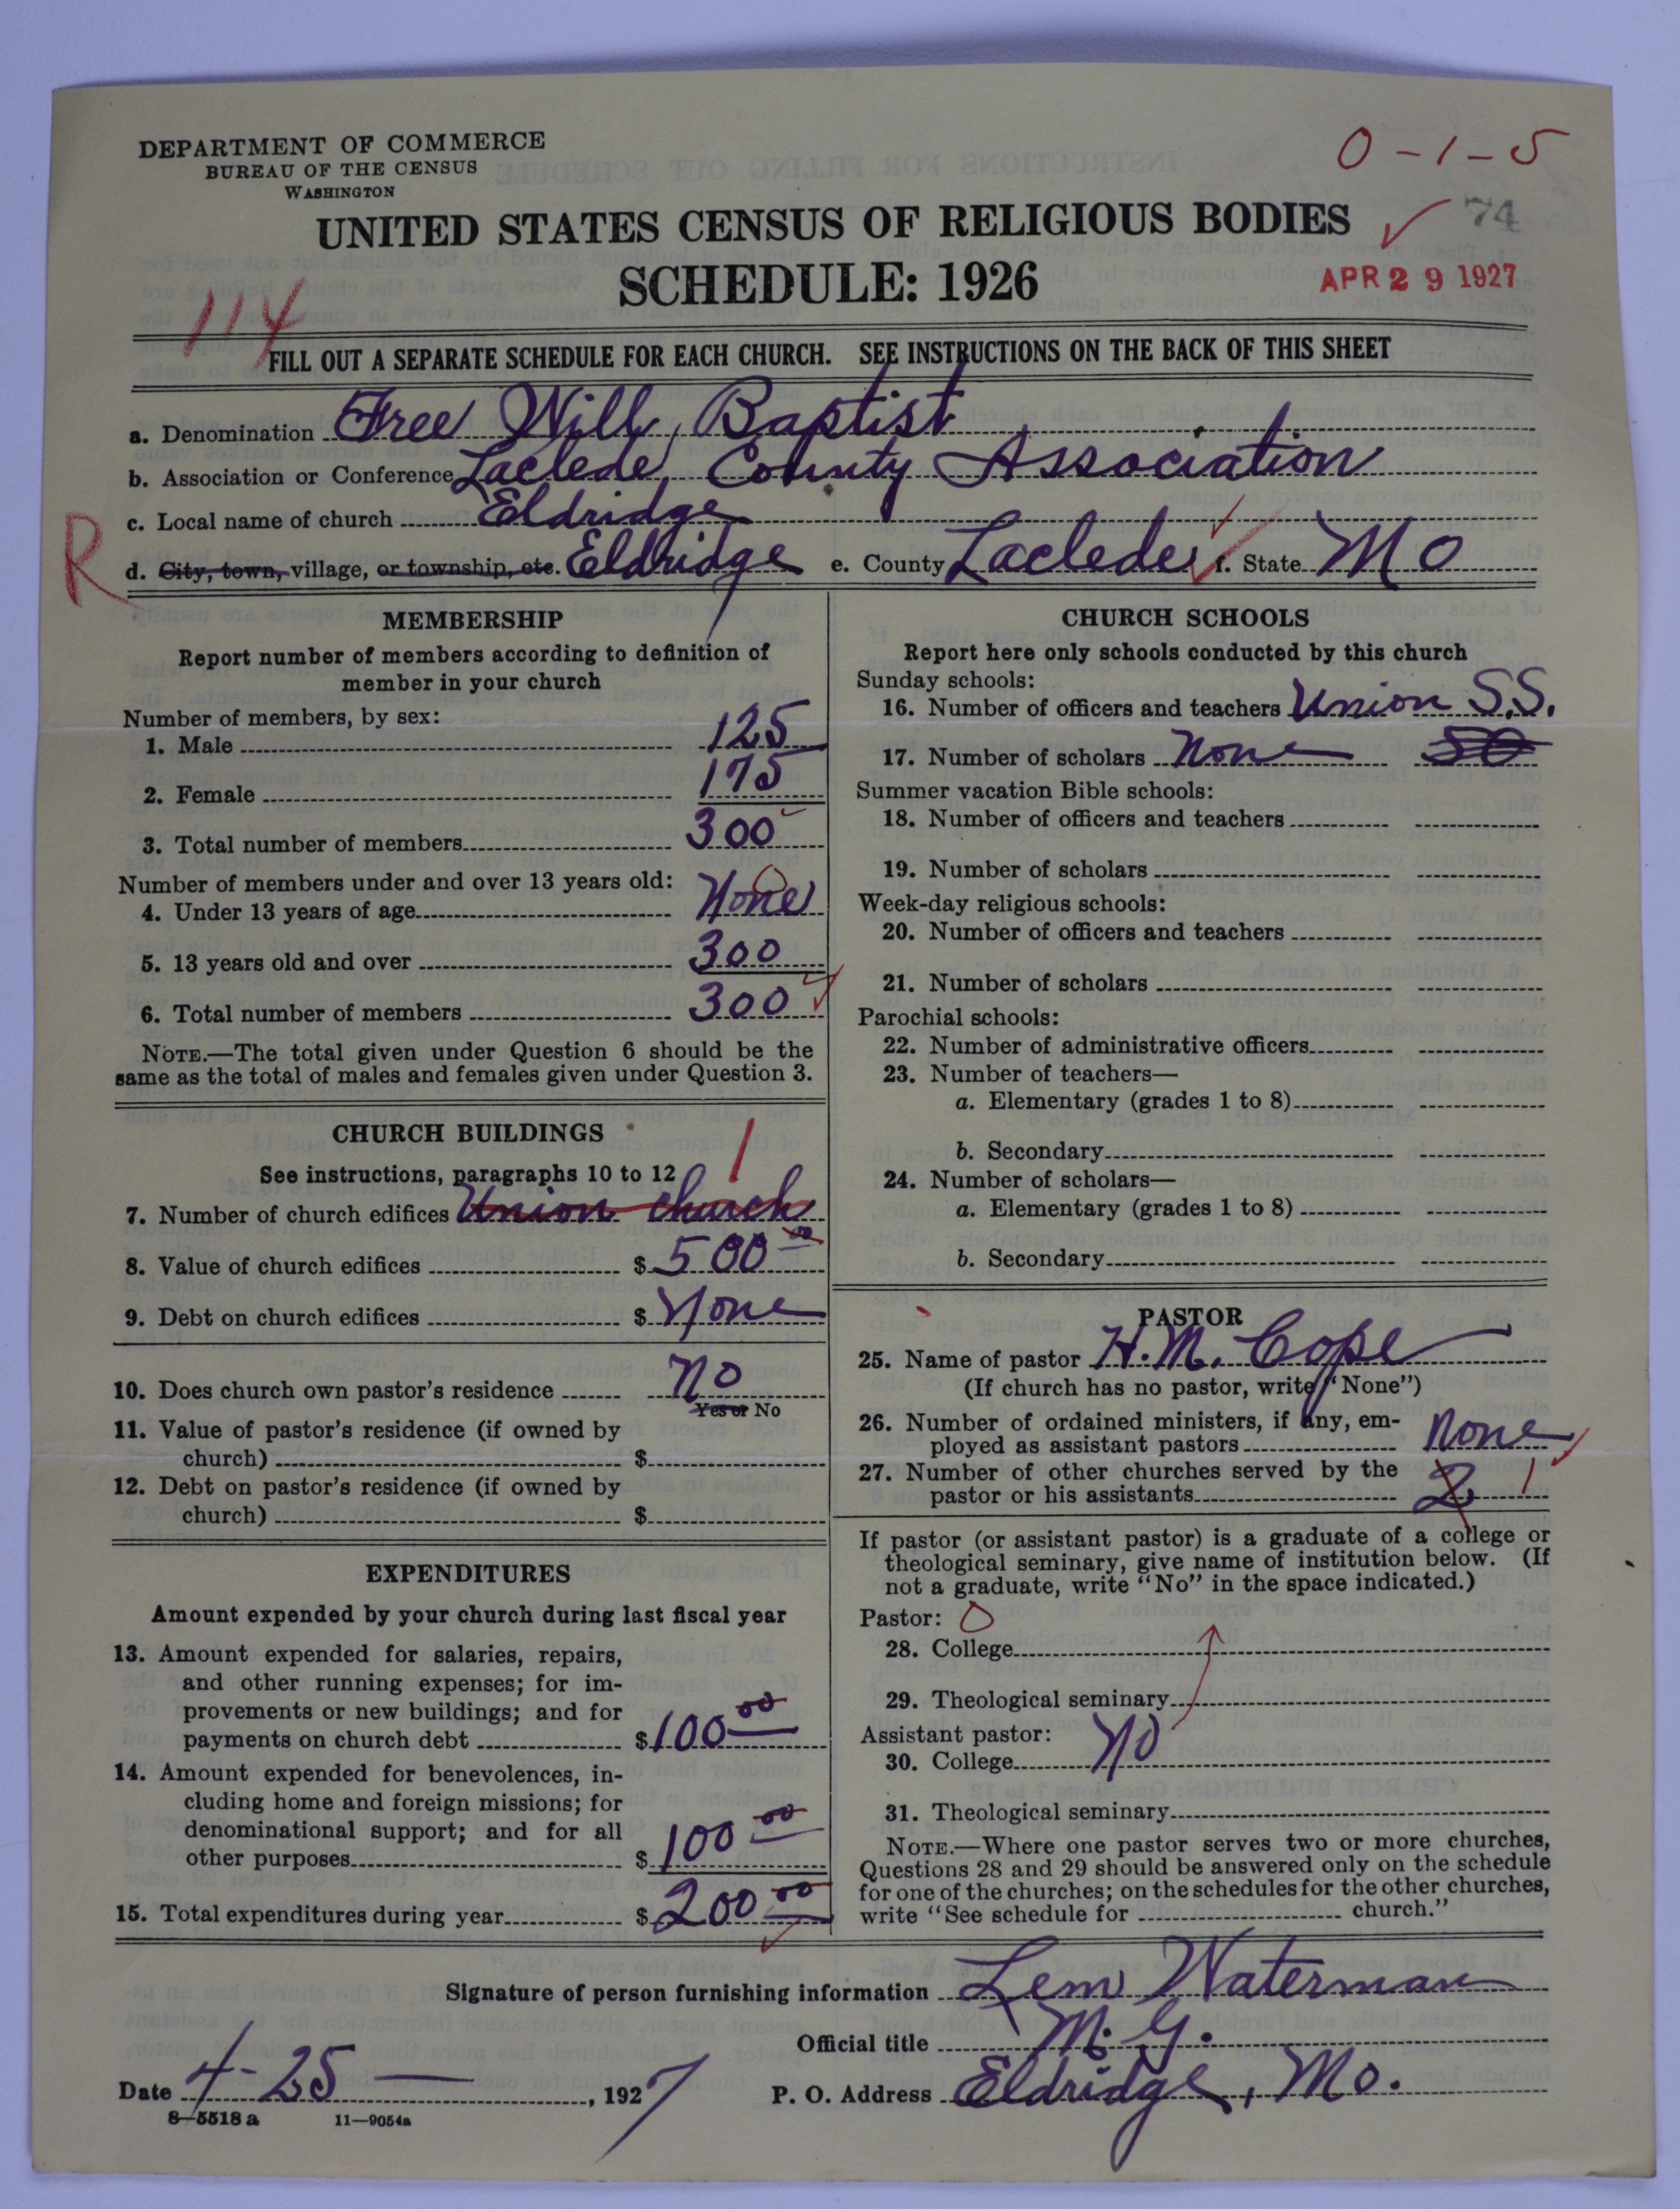 DEPARTMENT OF COMMERCE
BUREAU OF THE CENSUS
WASHINGTON
0-1-5
74
UNITED STATES CENSUS OF RELIGIOUS BODIES
SCHEDULE: 1926
APR 29 1927
114
FILL OUT A SEPARATE SCHEDULE FOR EACH CHURCH. SEE INSTRUCTIONS ON THE BACK OF THIS SHEET
a. Denomination Free Will Baptist
b. Association or Conference Laclede County Association
c. Local name of church Eldridge
R
d. City, town, village, or township, etc. Eldridge e. County Laclede f. State Mo
MEMBERSHIP
Report number of members according to definition of
member in your church
Number of members, by sex:
1. Male 125
2. Female 175
3. Total number of members 300
Number of members under and over 13 years old:
4. Under 13 years of age None 0
5. 13 years old and over 300
6. Total number of members 300
NOTE.—The total given under Question 6 should be the
same as the total of males and females given under Question 3.
CHURCH BUILDINGS
See instructions, paragraphs 10 to 12
1
7. Number of church edifices Union church
8. Value of church edifices $ 500 00
9. Debt on church edifices $ None
10. Does church own pastor's residence No
Yes or No
11. Value of pastor's residence (if owned by
church) $
12. Debt on pastor's residence (if owned by
church) $
EXPENDITURES
Amount expended by your church during last fiscal year
13. Amount expended for salaries, repairs,
and other running expenses; for im-
provements or new buildings; and for
payments on church debt $ 100 00
14. Amount expended for benevolences, in-
cluding home and foreign missions; for
denominational support; and for all
other purposes $ 100 00
15. Total expenditures during year $ 200 00
CHURCH SCHOOLS
Report here only schools conducted by this church
Sunday schools:
16. Number of officers and teachers Union S.S.
17. Number of scholars None 50
Summer vacation Bible schools:
18. Number of officers and teachers
19. Number of scholars
Week-day religious schools:
20. Number of officers and teachers
21. Number of scholars
Parochial schools:
22. Number of administrative officers
23. Number of teachers—
a. Elementary (grades 1 to 8)
b. Secondary
24. Number of scholars—
a. Elementary (grades 1 to 8)
b. Secondary
PASTOR
25. Name of pastor H. M. Cope
(If church has no pastor, write "None")
26. Number of ordained ministers, if any, em-
ployed as assistant pastors None
27. Number of other churches served by the
pastor or his assistants 2 1
If pastor (or assistant pastor) is a graduate of a college or
theological seminary, give name of institution below. (If
not a graduate, write "No" in the space indicated.)
Pastor: 0
28. College
29. Theological seminary
Assistant pastor:
30. College No
31. Theological seminary
NOTE.—Where one pastor serves two or more churches,
Questions 28 and 29 should be answered only on the schedule
for one of the churches; on the schedules for the other churches,
write "See schedule for church."
Signature of person furnishing information Lem Waterman
Official title M. G.
Date 4-25 —, 1927 P. O. Address Eldridge, Mo.
8-5518 a 11-9054a